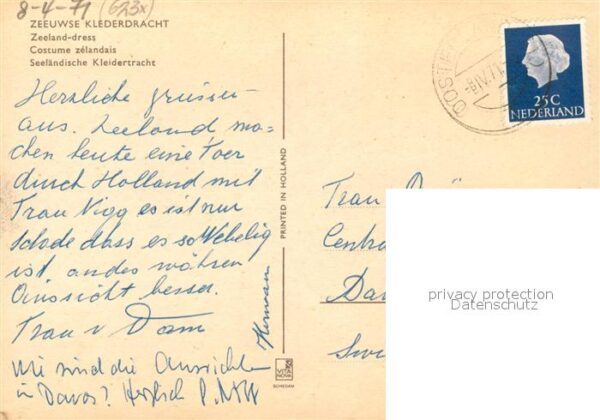 8-4-71 (623x)
ZEEUWSE KLEDERDRACHT
Zeeland-dress
Costume zélandais
Seeländische Kleidertracht
Herzliche grüssen
aus. Zeeland ma=
chen heute eine Toer
durch Holland mit
Frau Vigg es ist nur
schade dass es so Nebelig
ist, andes wären
Aussicht besser.
Frau v Dam
Herman
Wie sind die Aussichten
in Davos? Herzlich
PRINTED IN HOLLAND
VITA NOVA
SCHIEDAM
OOST
-8.IV.71
25C
NEDERLAND
Frau
Centra
Da
privacy protection
Datenschutz